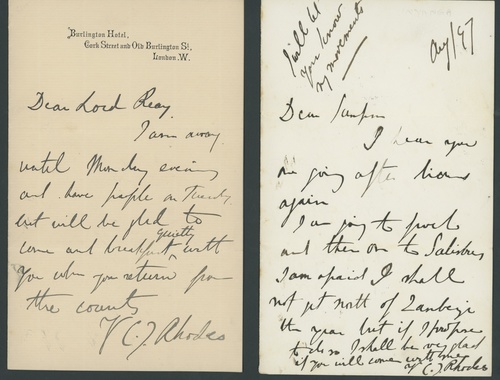 Burlington Hotel,
Cork Street and Old Burlington St.
London. W.
Dear Lord Reay
I am away
until Monday evening
and have people on Tuesday
but will be glad to
come and breakfast quietly with
you when you return from
the country
Y C J Rhodes
I will let
you know
my movements
Aug/97
Dear
I hear you
are going after lions
again
I am going to
and then on to Salisbury
I am afraid I shall
not get north of Zambezi
the year but if I propose
to do so I shall be very glad
if you will come with me
Y C J Rhodes